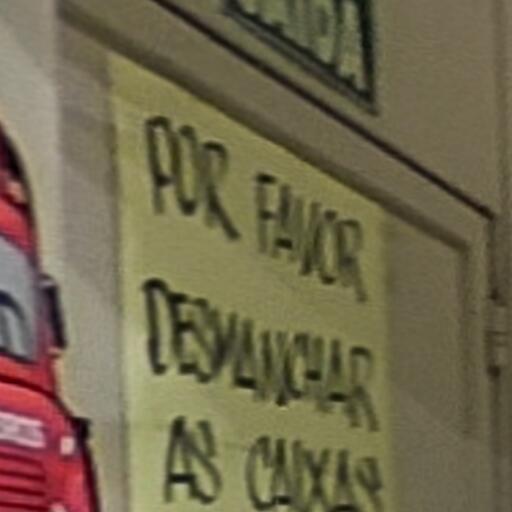 POR FAVOR
DESMANCHAR
AS CAIXAS